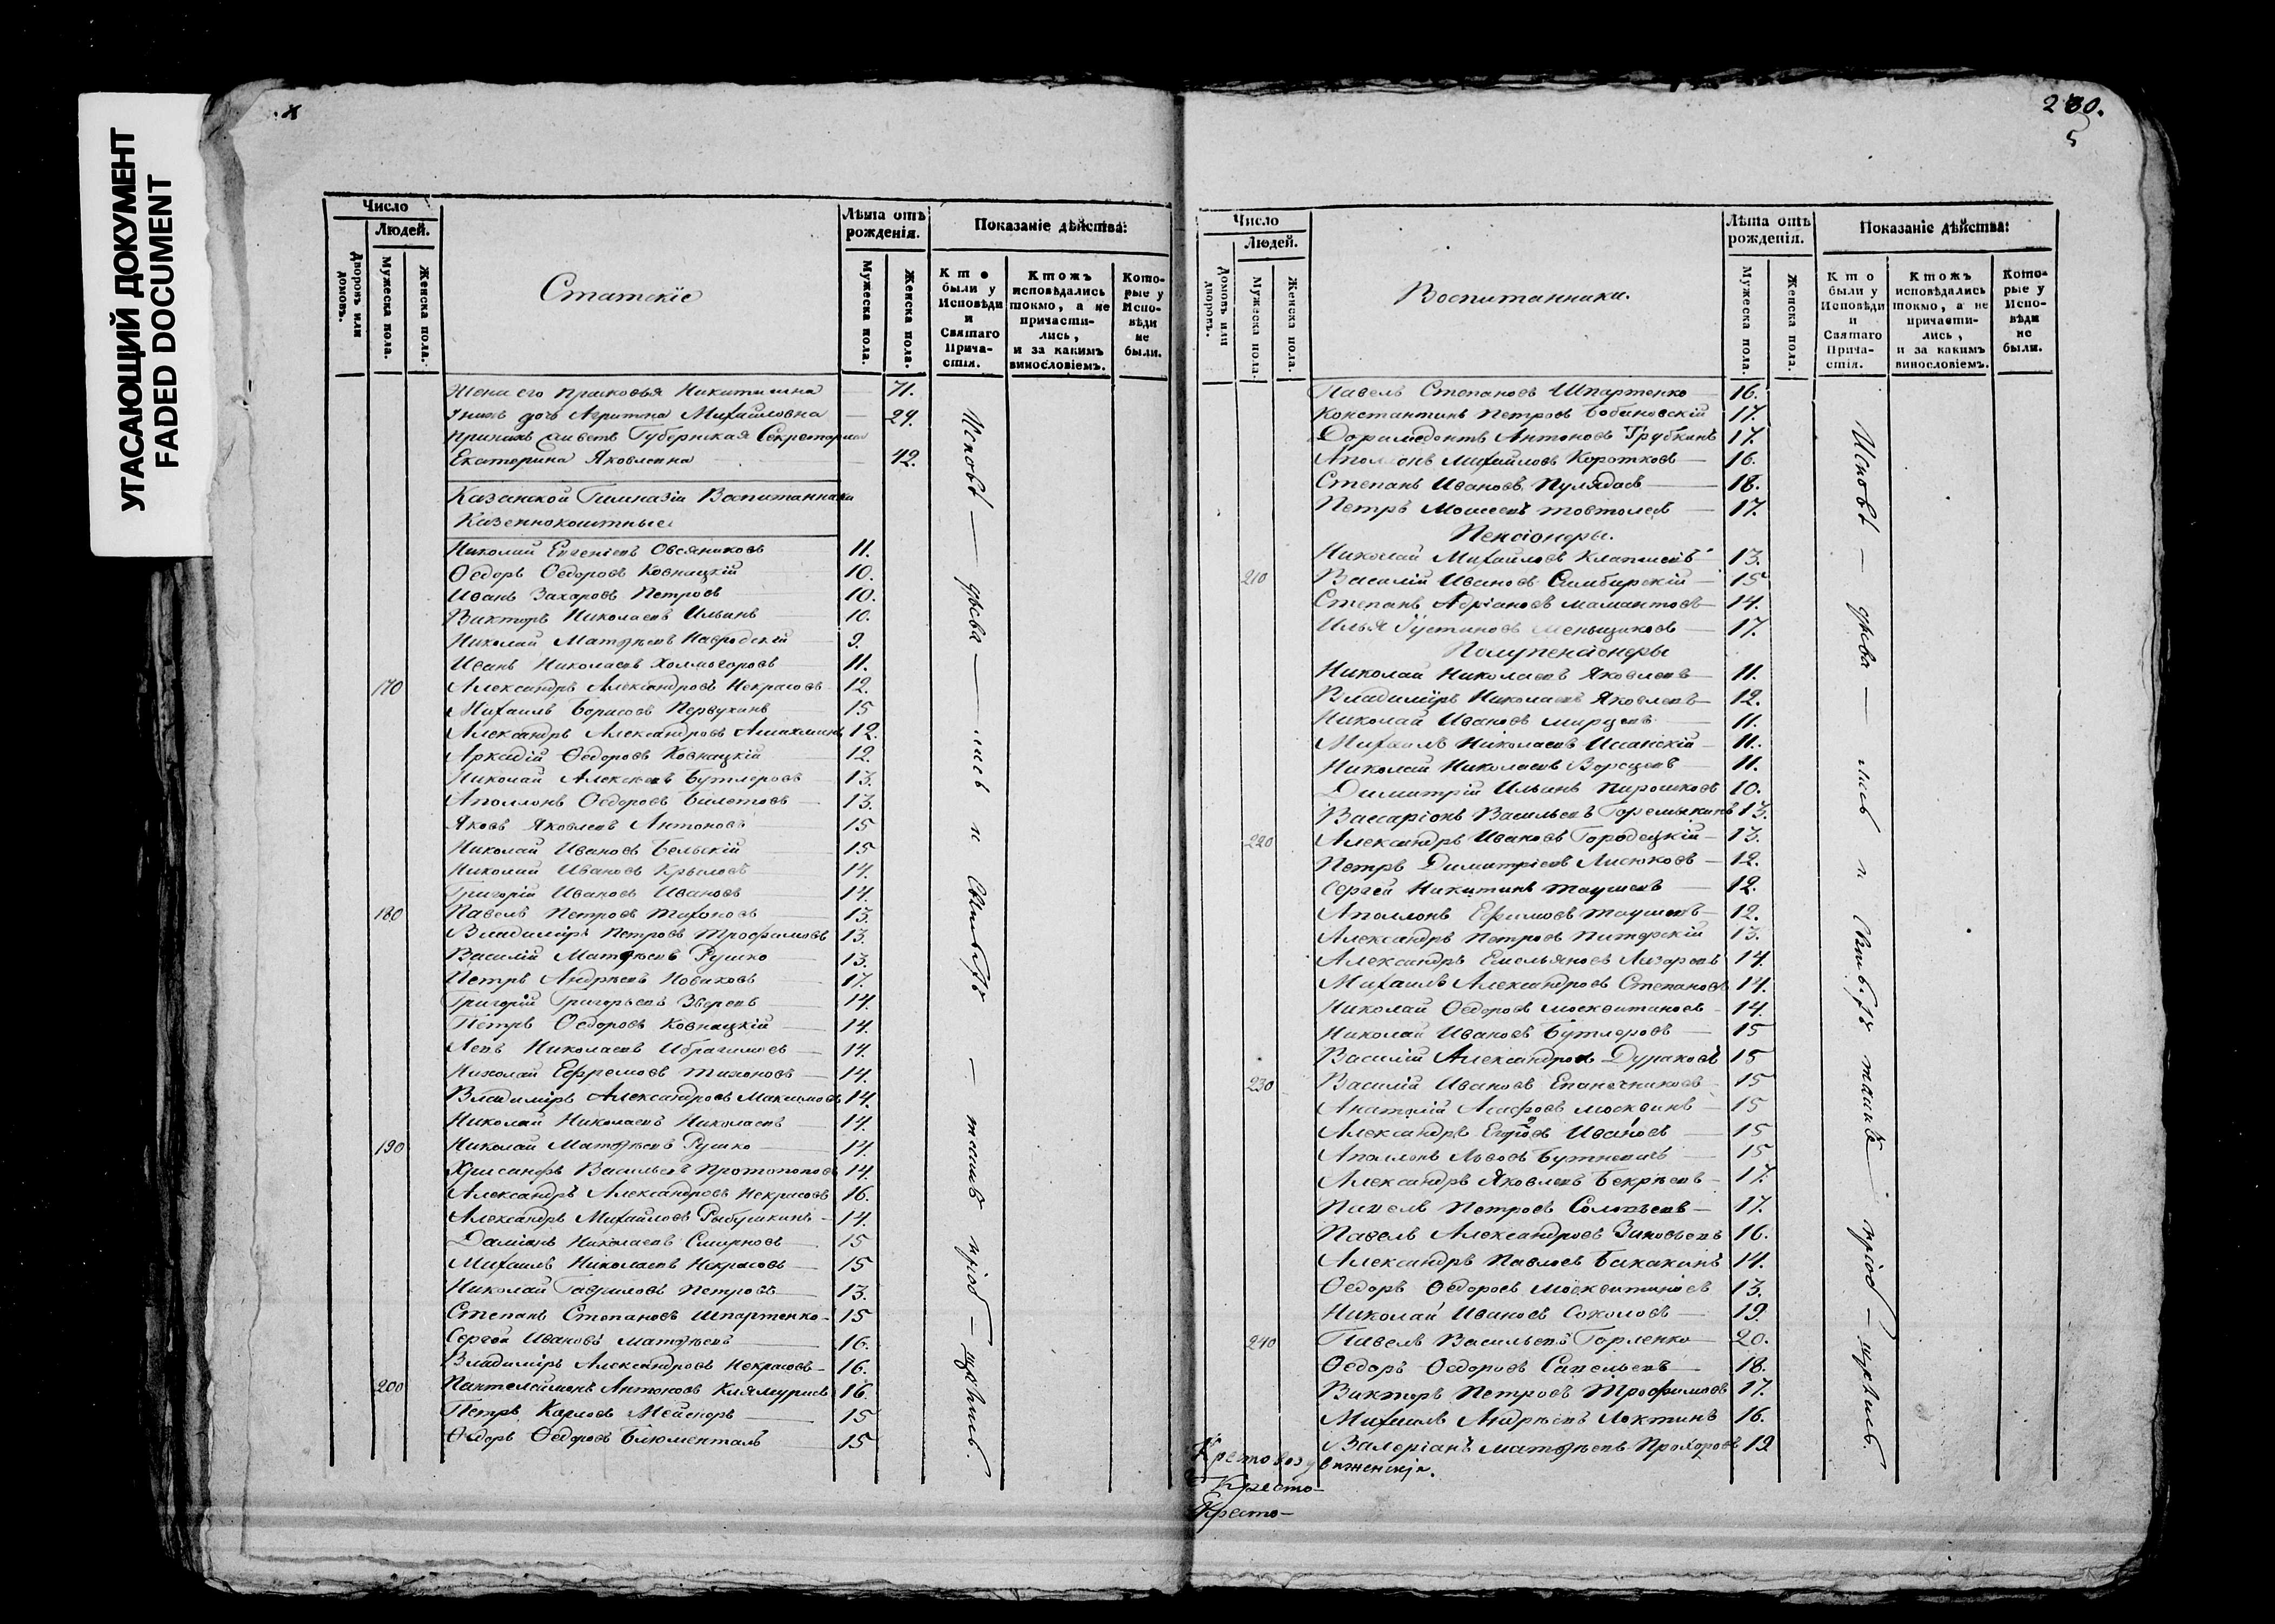 УГАСАЮЩИЙ ДОКУМЕНТ
FADED DOCUMENT
х
Число
Людей.
Дворовъ или домовъ.
Мужеска пола.
Женска пола.
Статскіе
Лѣта отъ рожденія.
Мужеска пола.
Женска пола.
Показаніе дѣйства:
Кто были у Исповѣди и Святаго Прича- стія.
Ктожъ исповѣдались токмо, а не причасти- лись, и за какимъ винословіемъ.
Кото- рые у Испо- вѣди не были.
Жена его Прасковья Никитишна 71.
У нихъ дочь Агрипина Михайловна 29.
При нихъ живетъ Губернская Секретарша
Екатерина Яковлевна 42.
Казанской Гимназіи Воспитанники
Казеннокоштные
Николай Евгеніевъ Овсяниковъ 11.
Ѳедоръ Ѳедоровъ Ковнацкій 10.
Иванъ Захаровъ Петровъ 10.
Викторъ Николаевъ Ильинъ 10.
Николай Матѳѣевъ Навродскій 9.
Иванъ Николаевъ Холмогоровъ 11.
170 Александръ Александровъ Некрасовъ 12.
Михаилъ Борисовъ Первухинъ 15
Александръ Александровъ 12.
Аркадій Ѳедоровъ Ковнацкій 12.
Николай Алексѣевъ Бутлеровъ 13.
Аполлонъ Ѳедоровъ Билетовъ 13.
Яковъ Яковлевъ Антоновъ 15
Николай Ивановъ Бельскій 15
Николай Ивановъ Крыловъ 14.
Григорій Ивановъ Ивановъ 14.
180 Павелъ Петровъ Тихоновъ 13.
Владиміръ Петровъ Трофимовъ 13.
Василій Матѳѣевъ Рушко 13.
Петръ Андрѣевъ Новиковъ 17.
Григорій Григорьевъ Зверевъ 14.
Петръ Ѳедоровъ Ковнацкій 14.
Левъ Николаевъ Ибрагимовъ 14.
Николай Ефремовъ Тихоновъ 14.
Владиміръ Александровъ Максимовъ 14.
Николай Николаевъ Николаевъ 14.
190 Николай Матѳѣевъ Рушко 14.
Хрисанфъ Васильевъ Протопоповъ 14.
Александръ Александровъ Некрасовъ 16.
Александръ Михайловъ Рыбушкинъ 14.
Даміанъ Николаевъ Смирновъ 15
Михаилъ Николаевъ Некрасовъ 15
Николай Гавриловъ Петровъ 13.
Степанъ Степановъ Шпартенко 15
Сергѣй Ивановъ Матѳѣевъ 16.
Владиміръ Александровъ Некрасовъ 16.
200 Пантелеймонъ Антоновъ 16.
Петръ Карловъ Мейснеръ 15
Ѳедоръ Ѳедоровъ Блюменталь 15
Исповѣ — дыва — лись и Святыхъ — таинъ пріоб — щались.
230.
5
Число
Людей.
Домовъ или дворовъ.
Мужеска пола.
Женска пола.
Воспитанники.
Лѣта отъ рожденія.
Мужеска пола.
Женска пола.
Показаніе дѣйства:
Кто были у Исповѣди и Святаго Прича- стія.
Ктожъ исповѣдались токмо, а не причасти- лись, и за какимъ винословіемъ.
Кото- рые у Испо- вѣди не были.
Павелъ Степановъ Шпартенко 16.
Константинъ Петровъ Бобиновскій 17.
Доримедонтъ Антоновъ Трубкинъ 17.
Аполлонъ Михайловъ Коротковъ 16.
Степанъ Ивановъ Пулядовъ 18.
Петръ Моисеевъ Товтолевъ 17.
Пенсіонеры.
Николай Михайловъ 13.
210 Василій Ивановъ Симбирскій 15
Степанъ Адріановъ Мамантовъ 14.
Илья Іустиновъ Меньщиковъ 17.
Полупенсіонеры
Николай Николаевъ Яковлевъ 11.
Владиміръ Николаевъ Яковлевъ 12.
Николай Ивановъ 11.
Михаилъ Николаевъ 11.
Николай Николаевъ 11.
Димитрій Ильинъ Пирожковъ 10.
Вассаріонъ Васильевъ Горемыкинъ 13.
220 Александръ Ивановъ Городецкій 13.
Петръ Димитріевъ Лисюковъ 12.
Сергей Никитинъ Таушевъ 12.
Аполлонъ Ефимовъ Таушевъ 12.
Александръ Петровъ Питерскій 13.
Александръ Емельяновъ Лазаревъ 14.
Михаилъ Александровъ Степановъ 14.
Николай Ѳедоровъ Москвитиновъ 14.
Николай Ивановъ Бутлеровъ 15
Василій Александровъ Дураковъ 15
230 Василій Ивановъ Епанечниковъ 15
Анатолій Асафовъ Москвинъ 15
Александръ Егоровъ Ивановъ 15
Аполлонъ Львовъ Бутневичъ 15
Александръ Яковлевъ Бекрѣевъ 17.
Павелъ Петровъ Соловьевъ 17.
Павелъ Александровъ Зиновьевъ 16.
Александръ Павловъ Бакакинъ 14.
Ѳедоръ Ѳедоровъ Москвитиновъ 13.
Николай Ивановъ Соколовъ 19.
240 Павелъ Васильевъ Горленко 20.
Ѳедоръ Ѳедоровъ Савельевъ 18.
Викторъ Петровъ Трофимовъ 17.
Михаилъ Андрѣевъ Локтинъ 16.
Валеріанъ Матѳѣевъ Прохоровъ 19
Исповѣ — дыва — лись и Святыхъ таинъ — пріоб — щались.
Крестовоздвиженскія.
Кресто-
Кресто-